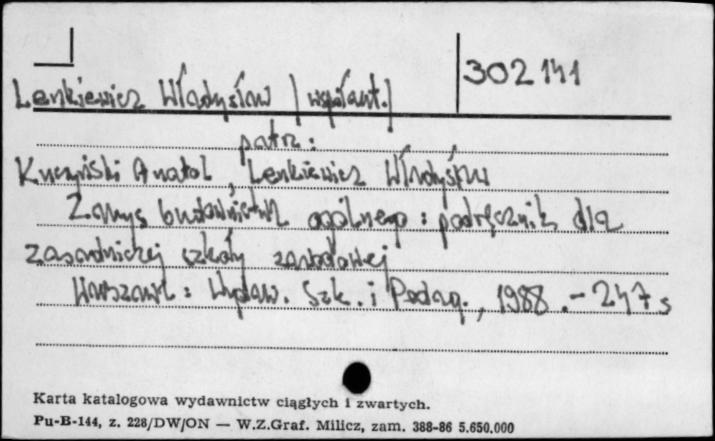 302141
Lenkiewicz Władysław /współaut./
patrz:
Kuczyński Anatol, Lenkiewicz Władysław
Zarys budownictwa ogólnego : podręcznik dla
zasadniczej szkoły zawodowej
Warszawa : Wydaw. Szk. i Pedag., 1988. - 247 s
Karta katalogowa wydawnictw ciągłych i zwartych.
Pu-B-144, z. 228/DW/ON — W.Z.Graf. Milicz, zam. 388-86 5.650.000